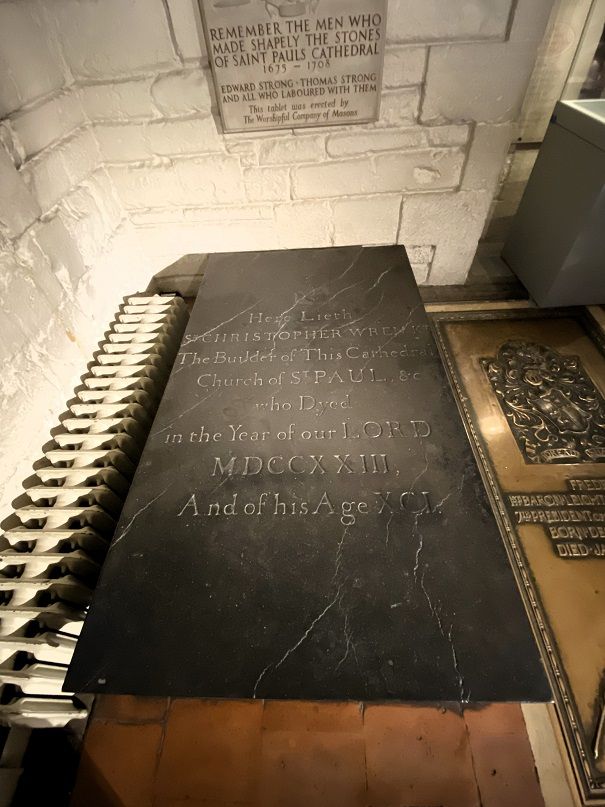 REMEMBER THE MEN WHO
MADE SHAPELY THE STONES
OF SAINT PAULS CATHEDRAL
1675 - 1708
EDWARD STRONG · THOMAS STRONG
AND ALL WHO LABOURED WITH THEM
This tablet was erected by
The Worshipful Company of Masons
Here Lieth
Sr CHRISTOPHER WREN Kt
The Builder of This Cathedral
Church of St PAUL, &c
who Dyed
in the Year of our LORD
MDCCXXIII,
And of his Age XCI.
FREDE
1ST BARON LEIGHT
7TH PRESIDENT OF
BORN DE
DIED JA